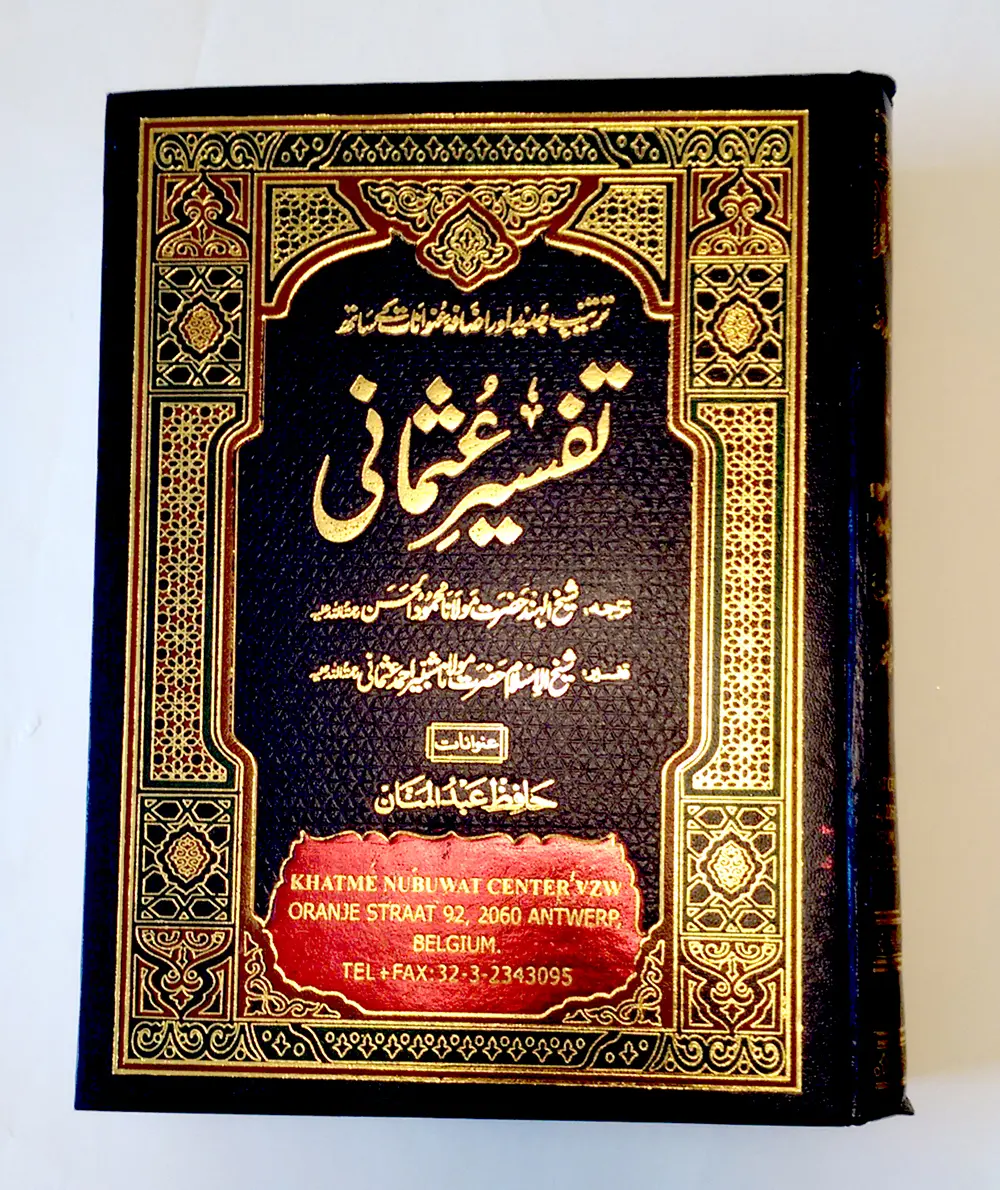 ترتیب جدید اور اضافۂ عنوانات کے ساتھ
تفسیرِ عُثمانی
ترجمہ: شیخ الہند حضرت مولانا محمود الحسن رحمۃ اللہ علیہ
تفسیر: شیخ الاسلام حضرت مولانا شبیر احمد عثمانی رحمۃ اللہ علیہ
عنوانات
حافظ عبد المنان
KHATME NUBUWAT CENTER VZW
ORANJE STRAAT 92, 2060 ANTWERP,
BELGIUM.
TEL+FAX:32-3-2343095